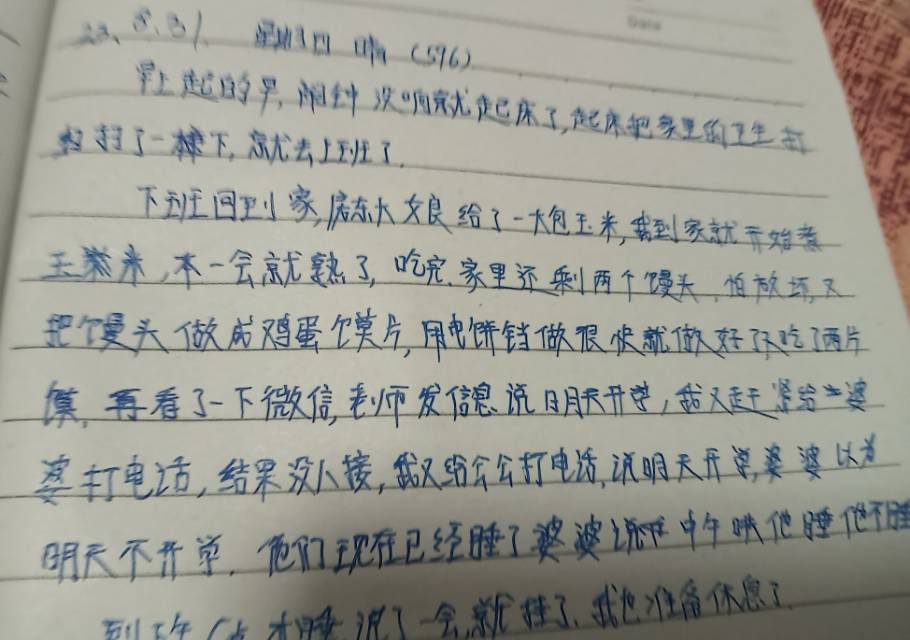 Date
23、8、31. 星期四 晴 (596)
早上起的早,闹钟没响就起床了,起床把家里的卫生打
扫了一下,就去上班了.
下班回到家,房东大娘给了一大包玉米,我到家就开始煮
玉米,不一会就熟了,吃完.家里还剩两个馒头,怕放坏,又
把馒头做成鸡蛋馍片,用电饼铛做很快就做好了,又吃了两片
馍,再看了一下微信,老师发信息说明天开学,我又赶紧给婆
婆打电话,结果没人接,我又给公公打电话,说明天开学,婆婆以为
明天不开学.他们现在已经睡了婆婆说中午哄他睡他不睡
到下午6点才睡说了一会就挂了.我也准备休息了.